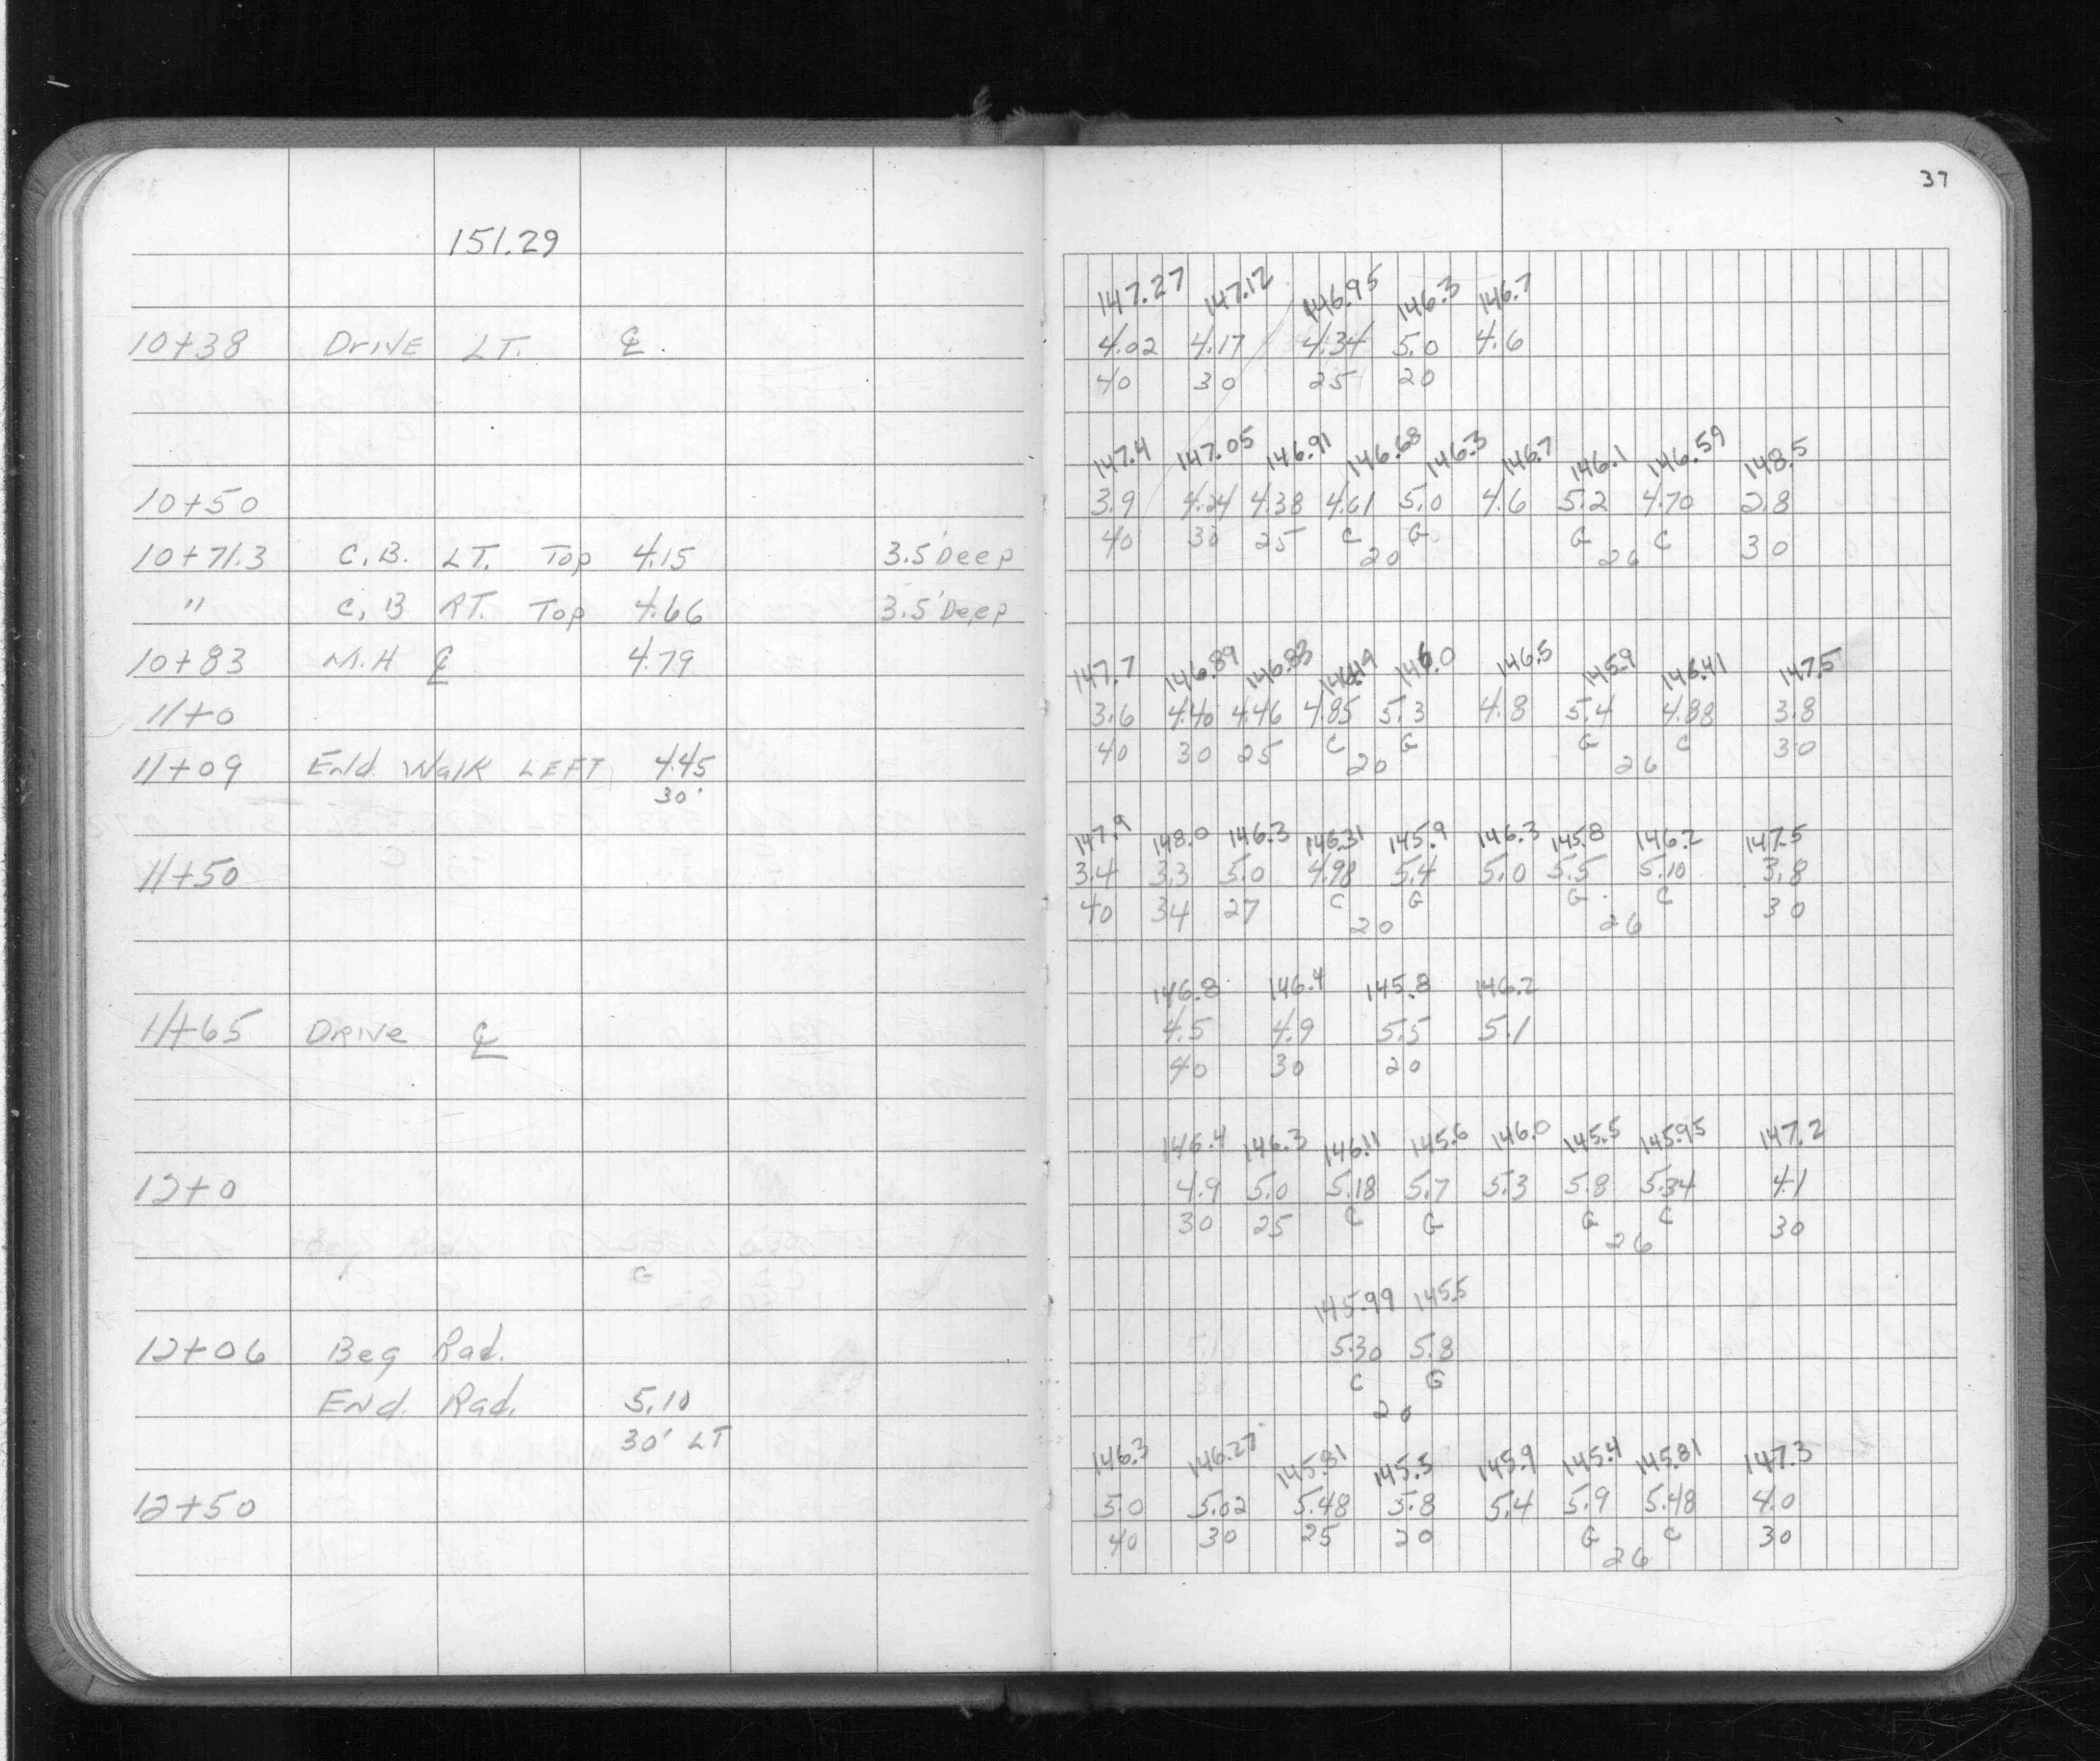 37
151.29
147.27 147.12 146.95 146.3 146.7
10+38 Drive LT. ℄. 4.02 4.17 4.34 5.0 4.6
40 30 25 20
147.4 147.05 146.91 146.68 146.3 146.7 146.1 146.59 148.5
10+50 3.9 4.24 4.38 4.61 5.0 4.6 5.2 4.70 2.8
40 30 25 C G G C 30
20 26
10+71.3 C.B. LT. Top 4.15 3.5' Deep
" C.B RT. Top 4.66 3.5' Deep
10+83 M.H ℄ 4.79
147.7 146.89 146.83 146.0 146.5 145.9 146.41 147.5
11+0 3.6 4.40 4.46 4.85 5.3 4.8 5.4 4.88 3.8
40 30 25 C G G C 30
20 26
11+09 End Walk LEFT 4.45
30'
147.9 148.0 146.3 146.31 145.9 146.3 145.8 146.2 147.5
11+50 3.4 3.3 5.0 4.98 5.4 5.0 5.5 5.10 3.8
40 34 27 C G G C 30
20 26
146.8 146.4 145.8 146.2
11+65 Drive ℄ 4.5 4.9 5.5 5.1
40 30 20
146.4 146.3 146.11 145.6 146.0 145.5 145.95 147.2
12+0 4.9 5.0 5.18 5.7 5.3 5.8 5.34 4.1
30 25 C G G C 30
26
145.99 145.5
12+06 Beg Rad. 5.30 5.8
C G
20
End. Rad. 5.10
30' LT
146.3 146.27 145.81 145.5 145.9 145.4 145.81 147.3
12+50 5.0 5.02 5.48 5.8 5.4 5.9 5.48 4.0
40 30 25 20 G C 30
26